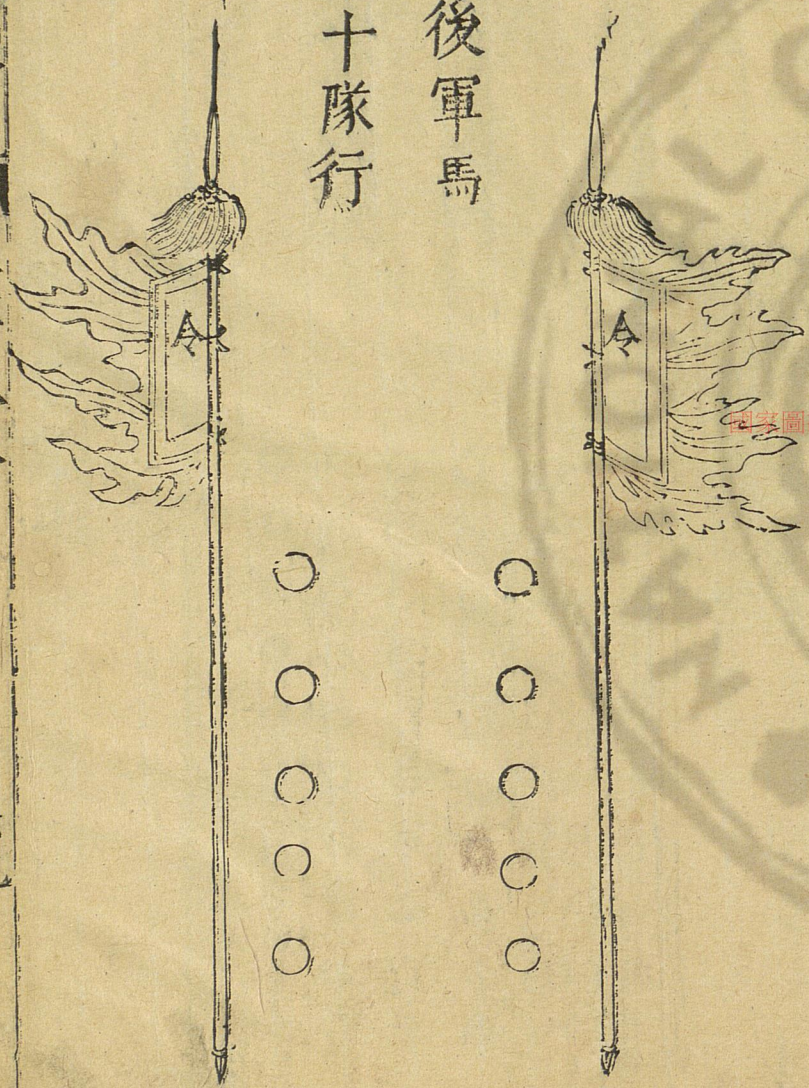 後軍馬
十隊行
令
令
國家圖